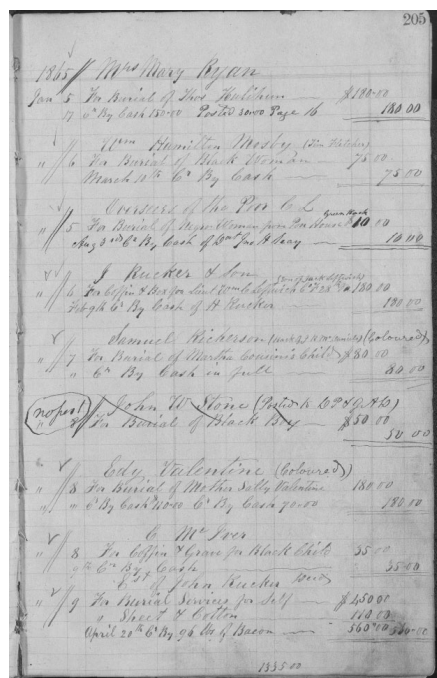 205
1865 // Mrs Mary Ryan
Jan 5 For Burial of Thos $180.00
" 17 Cr By Cash 150.00 Posted 30.00 Page 16 180.00
Wm Hamilton Mosby (Jim Fletcher)
" 6 For Burial of Black Woman 75.00
March 10th Cr By Cash 75.00
Overseers of the Poor C. L
" 5 For Burial of Negro Woman from Poor House 10.00
Aug 3rd Cr By Cash of 10.00
J Rucker & Son
" 6 For Coffin & Box for Lieut 28th 180.00
Feb 9th Cr By Cash of H Rucker 180.00
Samuel (Coloured)
" 7 For Burial of Martha Cousins Child $80.00
" Cr By Cash in full 80.00
no post
John W Stone (Posted
" 8 For Burial of Black Boy $50.00
50 00
Edy Valentine (Coloured)
" 8 For Burial of Mother Sally Valentine 180.00
" Cr By Cash 110.00 Cr By Cash 70.00 180.00
C McIver
" 8 For Coffin & Grave for Black Child 35.00
9th Cr By Cash 35.00
Est of John Rucker
" 9 For Burial Services for Self $450.00
" Sheet & Cotton 110.00
April 20th Cr By 96 lbs of Bacon 560.00 560.00
1335.00